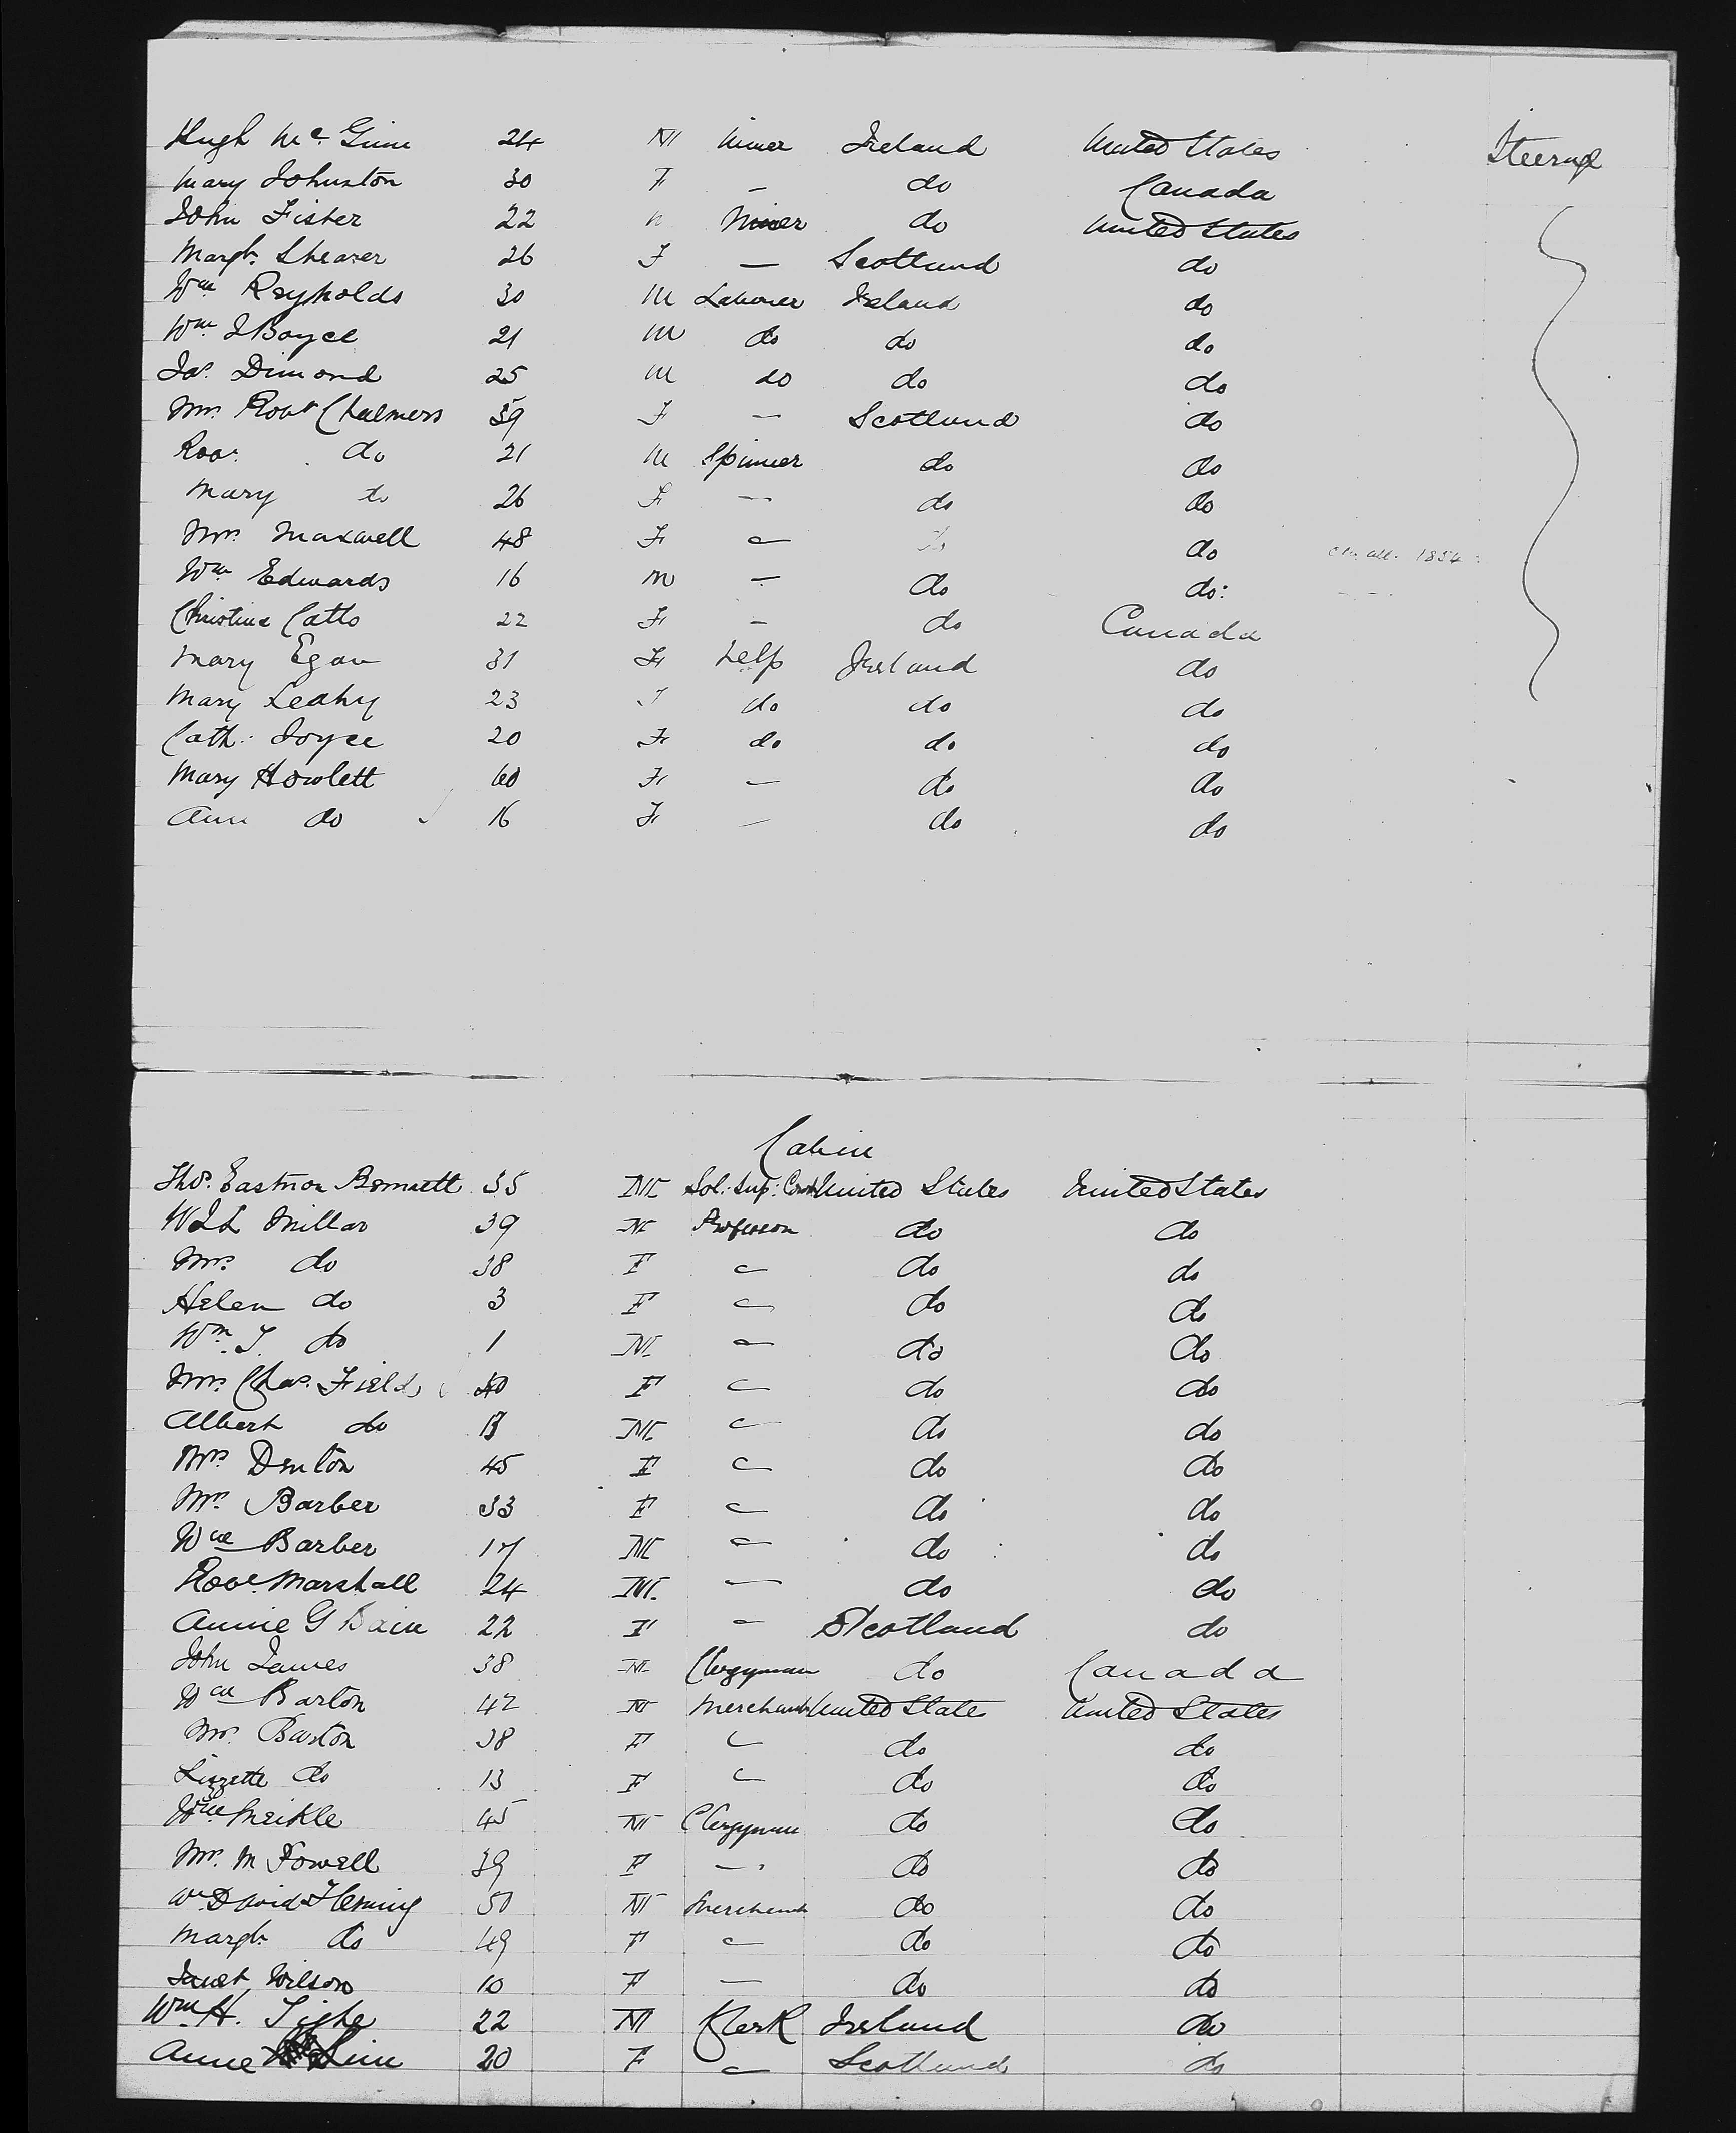 Hugh Mc Ginn 24 M Miner Ireland United States Steerage
Mary Johnston 30 F — do Canada
John Fister 22 M Miner do United States
Margt. Shearer 26 F — Scotland do
Wm Reynolds 30 M Laborer Ireland do
Wm J Boyce 21 M do do do
Jas. Dimond 25 M do do do
Mrs. Robt Chalmers 39 F — Scotland do
Robt. do 21 M Spinner do do
Mary do 26 F — do do
Mrs. Maxwell 48 F — do do 1854
Wm Edwards 16 M — do do:
Christina Catto 22 F — do Canada
Mary Egan 31 F help Ireland do
Mary Leahy 23 F do do do
Cath: Joyce 20 F do do do
Mary Howlett 60 F — do do
Ann do 16 F — do do
Cabin
Thos. Eastman 35 M Sol: Sup: United States United States
W J L Millar 39 M Professor do do
Mrs. do 38 F — do do
Helen do 3 F — do do
Wm. J. do 1 M — do do
Mrs. Chas. Field 40 F — do do
Albert do 13 M — do do
Mrs. Denton 45 F — do do
Mrs. Barber 33 F — do do
Wm Barber 17 M — do do
Robt. Marshall 24 M — do do
Annie G Bain 22 F — Scotland do
John James 38 M Clergyman do Canada
Wm Barton 42 M Merchant United States United States
Mrs. Barton 38 F — do do
Lizzette do 13 F — do do
Wm Meikle 45 M Clergyman do do
Mrs. M Powell 39 F — do do
David Fleming 50 M Merchant do do
Margt. do 49 F — do do
Janet Wilson 10 F — do do
Wm H. Tighe 22 M Clerk Ireland do
Anne 20 F — Scotland do